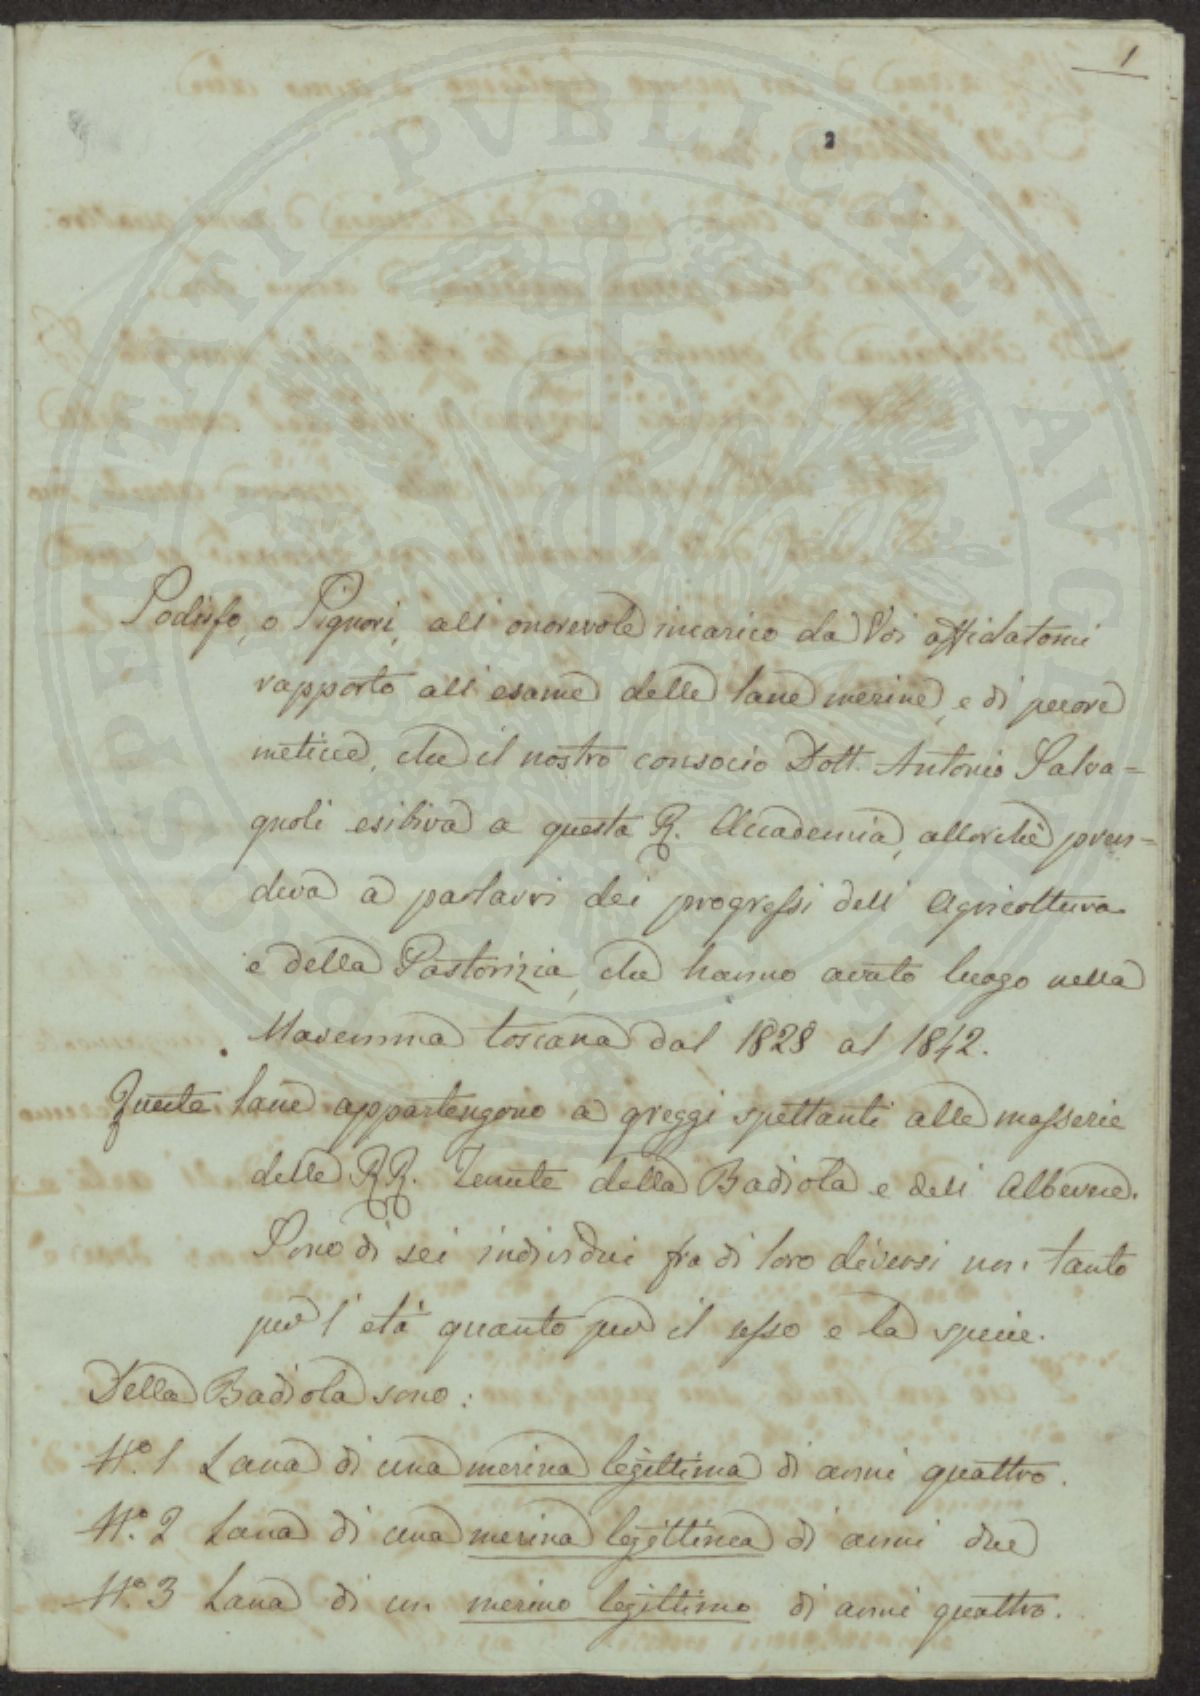 1
2
Sodisfo, o Signori, all'onorevole incarico da Voi affidatomi
rapporto all'esame delle lane merine, e di pecore
meticce, che il nostro consocio Dott. Antonio Salva=
gnoli esibiva a questa R. Accademia, allorchè pren=
deva a parlarvi dei progressi dell'Agricoltura
e della Pastorizia, che hanno avuto luogo nella
Maremma toscana dal 1828 al 1842.
Queste lane appartengono a greggi spettanti alle masserie
delle RR. Tenute della Badiola e dell'Alberese.
Sono di sei individui fra di loro diversi non tanto
per l'età quanto per il sesso e la specie.
Della Badiola sono:
N.º 1 Lana di una merina legittima di anni quattro.
N.º 2 Lana di una merina legittima di anni due
N.º 3 Lana di un merino legittimo di anni quattro.
PROSPERITATI PVBLICAE AVGENDAE